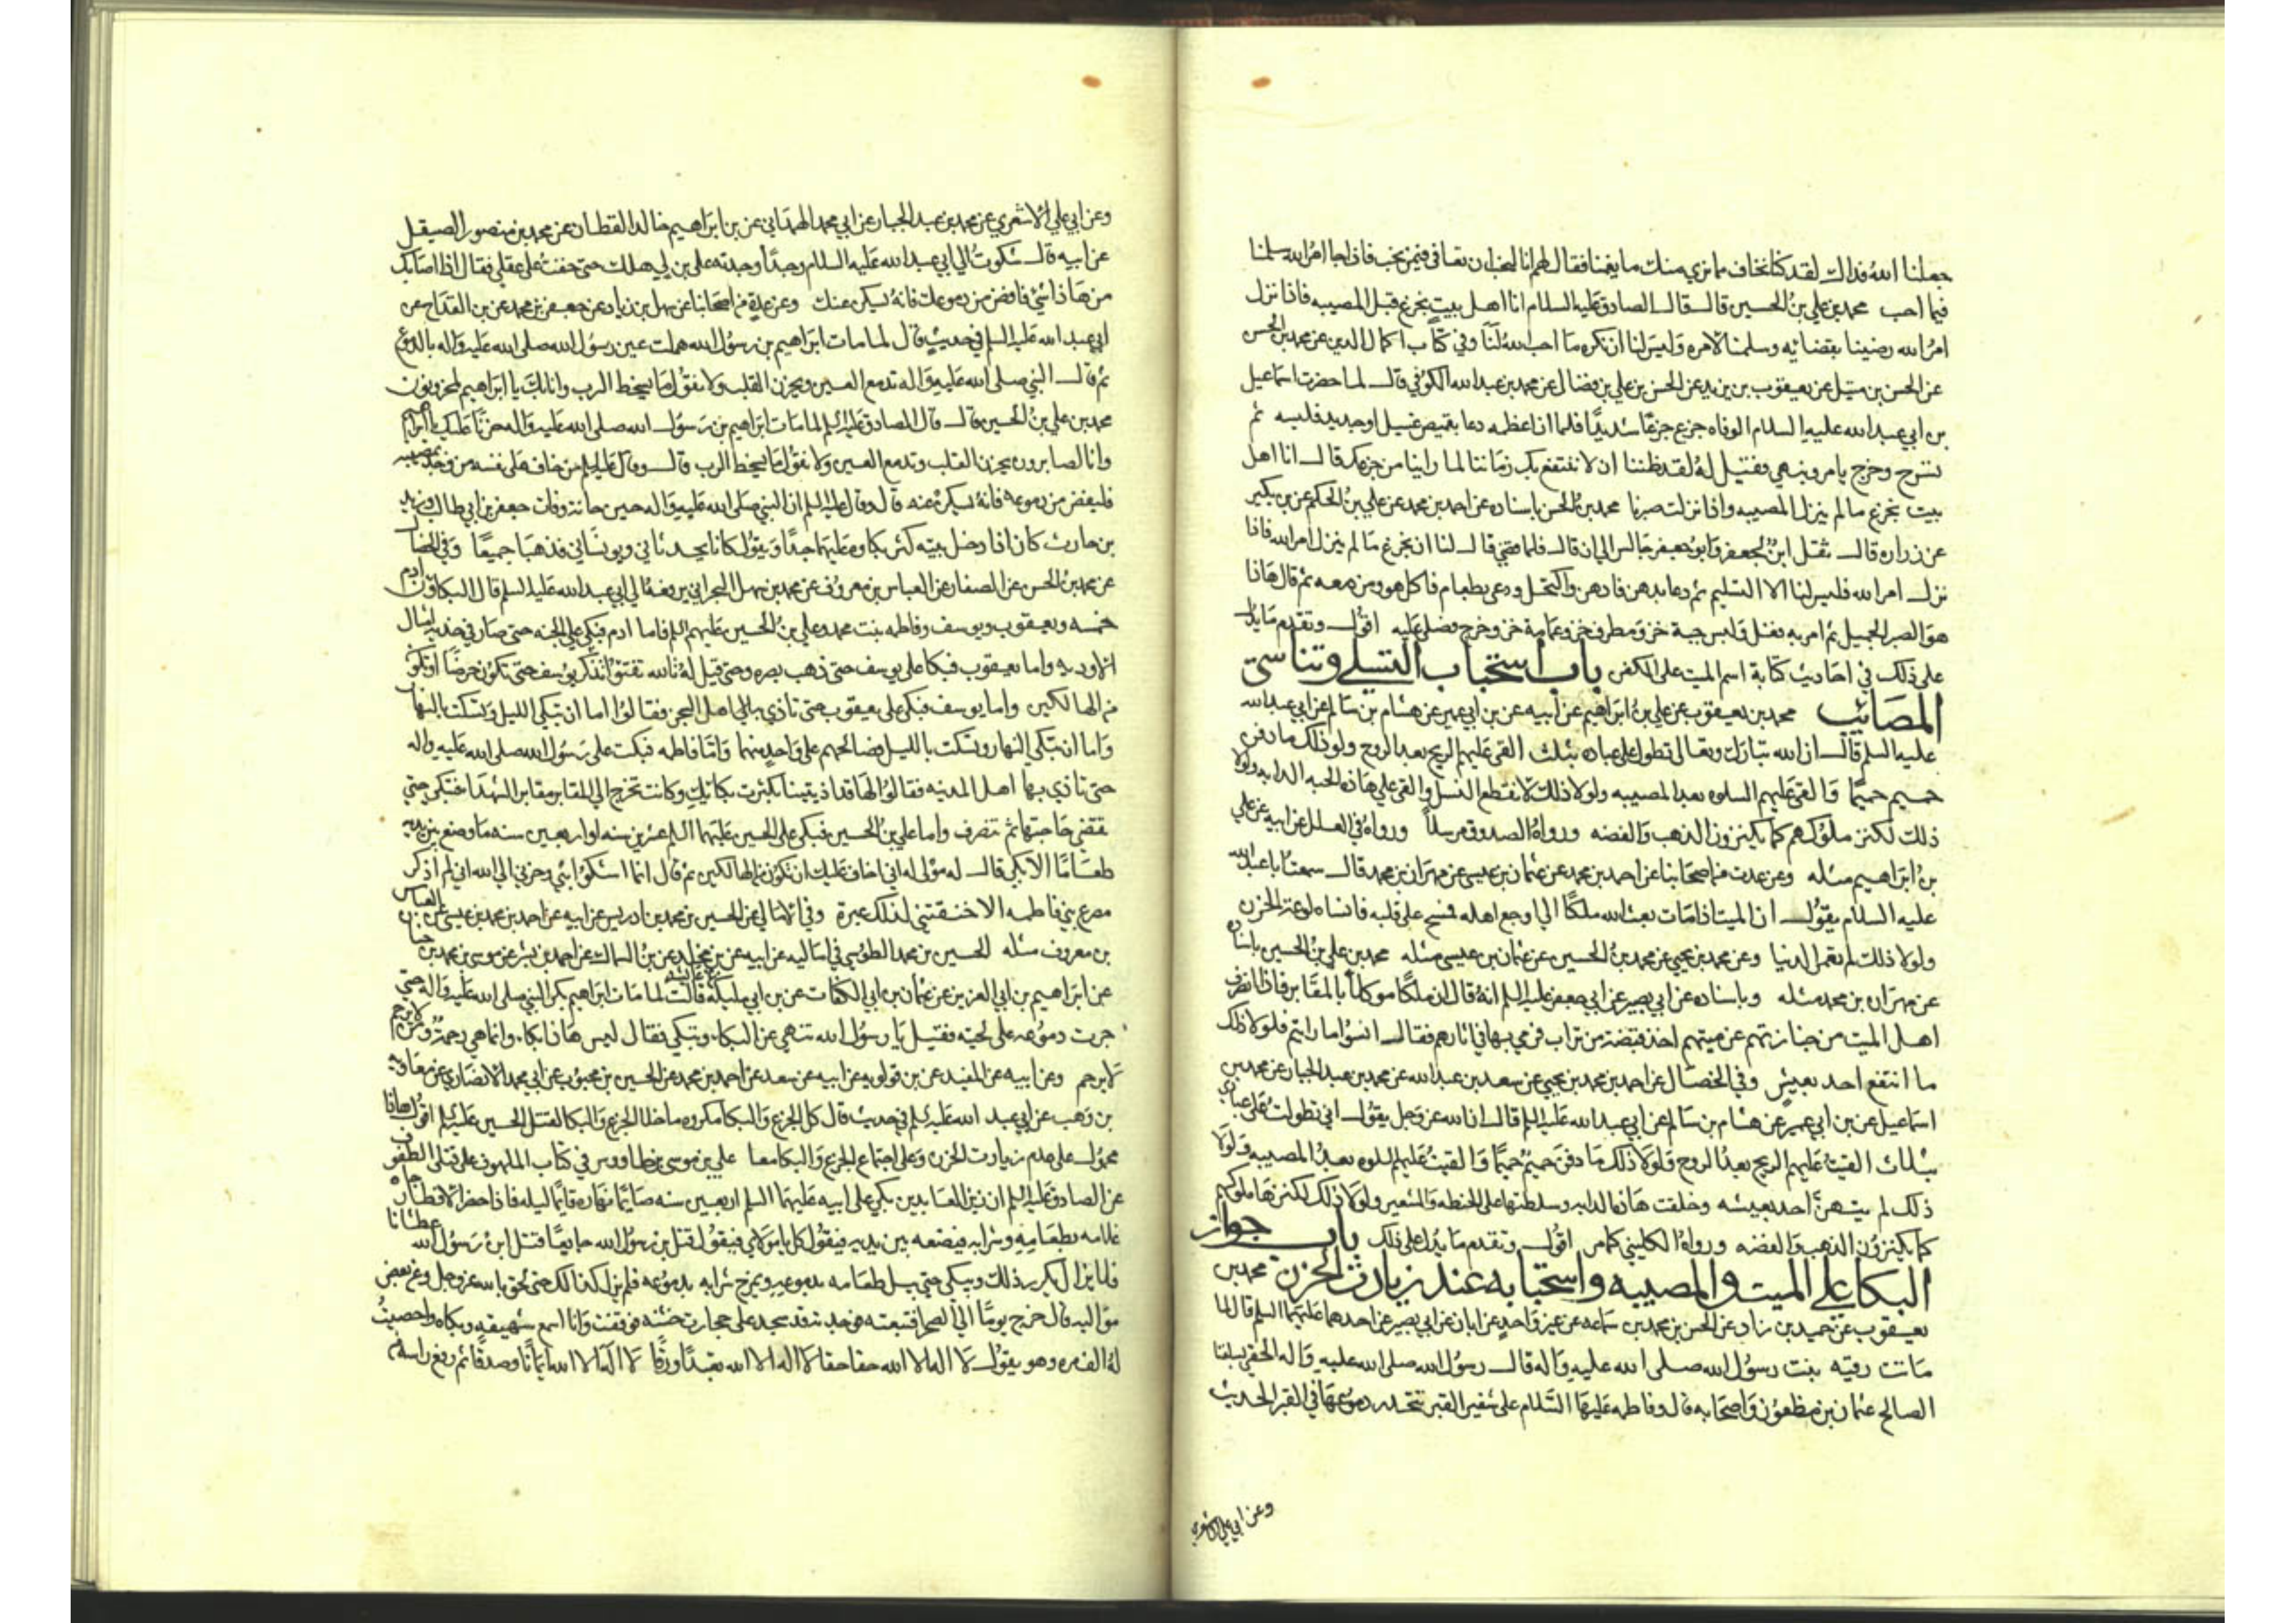 جعلنا الله فداك لقد كنا نخاف مما نري منك ما يغمنا فقال لهم انا لنحب ان نعافى فيمن نحب فاذا جا امر الله سلمنا
فيما احب محمد بن علي بن الحسين قال قال الصادق عليه السلام انا اهل بيت نجزع قبل المصيبه فاذا نزل
امر الله رضينا بقضائه وسلمنا لامره وليس لنا ان نكره ما احب الله لنا وفي كتاب اكمال الدين عن محمد بن الحسن
عن الحسن بن متيل عن يعقوب بن يزيد عن الحسن بن علي بن فضال عن محمد بن عبدالله الكوفي قال لما حضرت اسماعيل
بن ابي عبدالله عليه السلام الوفاه جزع جزعًا شديدًا فلما ان اغمضه دعا بقميص غسيل او جديد فلبسه ثم
تسرح وخرج يامر وينهي فقيل له لقد ظننا ان لا ننتفع بك زمانا لما راينا من جزعك قال انا اهل
بيت نجزع ما لم ينزل المصيبه واذا نزلت صبرنا محمد بن الحسن باسناده عن احمد بن محمد عن علي بن الحكم عن بن بكير
عن زراره قال ثقل ابن لجعفر وابو جعفر جالس الي ان قال فلما قضي قال لنا ان نجزع ما لم ينزل امر الله فاذا
نزل امر الله فليس لنا الا التسليم ثم دعا بدهن فادهن واكتحل ودعى بطعام فاكل هو ومن معه ثم قال هاذا
هو الصبر الجميل ثم امر به فغسل ولبس جبة خز ومطرف خز وعمامة خز وخرج فصلى عليه اقول وتقدم ما يدل
على ذلك في احاديث كتابة اسم الميت على الكفن باب استحباب التسلي وتناسي
المصائب محمد بن يعقوب عن علي بن ابراهيم عن ابيه عن بن ابي عمير عن هشام بن سالم عن ابي عبدالله
عليه السلم قال ان الله تبارك وتعالى تطول على عباده بثلث القى عليهم الريح بعد الروح ولو ذلك ما دفن
حميم حميمًا والقى عليهم السلوه بعد المصيبه ولولا ذلك لانقطع النسل والقى علي هاذه الحبه الدابه ولولا
ذلك لكنز ملوكهم كما يكنزون الذهب والفضه ورواه الصدوق مرسلاً ورواه في العلل عن ابيه عن علي
بن ابراهيم مثله وعن عدت من اصحابنا عن احمد بن محمد عن عثمان بن عيسى عن مهران بن محمد قال سمعت ابا عبدالله
عليه السلام يقول ان الميت اذا مات بعث الله ملكًا الي اوجع اهله فمسح على قلبه فانساه لوعة الحزن
ولولا ذلك لم تعمر الدنيا وعن محمد بن يحيي عن محمد بن الحسين عن عثمان بن عيسى مثله محمد بن علي بن الحسين باسناده
عن مهران بن محمد مثله وباسناده عن ابي بصير عن ابي جعفر عليه السلم انه قال ان ملكًا موكلاً بالمقابر فاذا انصرف
اهل الميت من جنازتهم عن ميتهم اخذ قبضة من تراب فرمي بها في اثارهم فقال انسوا ما رايتم فلولا ذلك
ما انتفع احد بعيش وفي الخصال عن احمد بن محمد بن يحيي عن سعد بن عبدالله عن محمد بن عبد الجبار عن محمد بن
اسماعيل عن بن ابي عمير عن هشام بن سالم عن ابي عبدالله عليه السلم قال ان الله عز وجل يقول اني تطولت على عبادي
بثلاث القيت عليهم الريح بعد الروح ولولا ذلك ما دفن حميم حميمًا والقيت عليهم السلوه بعد المصيبه ولولا
ذلك لم يتهن احد بعيشه وخلقت هاذه الدابه وسلطتها على الحنطه والشعير ولولا ذلك لكنزها ملوكهم
كما يكنزون الذهب والفضه ورواه الكليني كما مر اقول وتقدم ما يدل على ذلك باب جواز
البكا على الميت والمصيبه واستحبابه عند زيادت الحزن محمد بن
يعقوب عن حميد بن زياد عن الحسن بن محمد بن سماعه عن غير واحد عن ابان عن ابي بصير عن احدهما عليهما السلم قال لما
ماتت رقيه بنت رسول الله صلى الله عليه واله قال رسول الله صلى الله عليه واله الحقي بسلفنا
الصالح عثمان بن مظعون واصحابه قال وفاطمه عليها السلام على شفير القبر تتحدر دموعها في القبر الحديث
وعن ابي علي الاشعري
وعن ابي علي الاشعري عن محمد بن عبد الجبار عن ابي محمد الهمداني عن بن ابراهيم خالد القطان عن محمد بن منصور الصيقل
عن ابيه قال شكوت الي ابي عبدالله عليه السلام وجدًا وجدته على بن لي هلك حتى خفت على عقلي فقال اذا اصابك
من هاذا شئ فافض من دموعك فانه يسكن عنك وعن عدة من اصحابنا عن سهل بن زياد عن جعفر بن محمد عن بن القداح عن
ابي عبدالله عليه السلم في حديث قال لما مات ابراهيم بن رسول الله هملت عين رسول الله صلى الله عليه واله بالدموع
ثم قال النبي صلى الله عليه واله تدمع العين ويحزن القلب ولا نقول ما يسخط الرب وانا بك يا ابراهيم لمحزونون
محمد بن علي بن الحسين قال قال الصادق عليه السلم لما مات ابراهيم بن رسول الله صلى الله عليه واله حزنا عليك يا ابراهيم
وانا لصابرون يحزن القلب وتدمع العين ولا نقول ما يسخط الرب قال وقال عليه السلم من خاف على نفسه من وجد بمصيبه
فليفض من دموعه فانه يسكن عنه قال وقال عليه السلم ان النبي صلى الله عليه واله حين جائته وفات جعفر بن ابي طالب وزيد
بن حارث كان اذا دخل بيته كثر بكاوه عليهما جدًا ويقول كانا يحدثاني ويونساني فذهبا جميعًا وفي الخصال
عن محمد بن الحسن عن الصفار عن العباس بن معروف عن محمد بن سهل البحراني يرفعه الي ابي عبدالله عليه السلم قال البكاؤن
خمسه ادم ويعقوب ويوسف وفاطمه بنت محمد وعلي بن الحسين عليهم السلم فاما ادم فبكى علي الجنه حتى صار في خديه امثال
الاوديه واما يعقوب فبكا على يوسف حتى ذهب بصره وحتى قيل له تالله تفتؤ تذكر يوسف حتى تكون حرضًا او تكون
من الهالكين واما يوسف فبكى على يعقوب حتى تاذي به اهل السجن فقالوا اما ان تبكي الليل وتسكت بالنهار
واما ان تبكي النهار وتسكت بالليل فصالحهم على واحد منهما واما فاطمه فبكت على رسول الله صلى الله عليه واله
حتى تاذي بها اهل المدينه فقالوا لها قد اذيتينا بكثرت بكائك وكانت تخرج الي المقابر مقابر الشهدا فتبكي حتي
تقضي حاجتها ثم تنصرف واما علي بن الحسين فبكى على الحسين عليهما السلم عشرين سنه او اربعين سنه ما وضع بين يديه
طعامًا الا بكي قال له مولى له اني اخاف عليك ان تكون من الهالكين ثم قال انما اشكوا بثي وحزني الي الله اني لم اذكر
مصرع بني فاطمه الا خنقتني لذلك عبرة وفي الامالي عن الحسين بن محمد بن ادريس عن ابيه عن احمد بن محمد بن عيسى عن العباس
بن معروف مثله الحسين بن محمد الطوسي في اماليه عن ابيه عن بن مخلد عن بن السماك عن احمد بن بشر عن موسى بن محمد بن حيان
عن ابراهيم بن ابي العزيز عن عثمان بن ابي الكنات عن بن ابي مليكة عن عائشه قالت لما مات ابراهيم بكى النبي صلى الله عليه واله حتي
جرت دموعه على لحيته فقيل يا رسول الله تنهي عن البكا وتبكي فقال ليس هاذا بكا وانما هي رحمة ومن لا يرحم
لا يرحم وعن ابيه عن المفيد عن بن قولويه عن ابيه عن سعد عن احمد بن محمد عن الحسين بن محبوب عن ابي محمد الانصاري عن معاويه
بن وهب عن ابي عبد الله عليه السلم في حديث قال كل الجزع والبكا مكروه ما خلا الجزع والبكا لقتل الحسين عليه السلم اقول هاذا
محمول على عدم زيادت الحزن وعلى اجتماع الجزع والبكا معا علي بن موسى بن طاووس في كتاب الملهوف على قتلى الطفوف
عن الصادق عليه السلم ان زين العابدين بكى على ابيه عليهما السلم اربعين سنه صائمًا نهاره قائمًا ليله فاذا حضر الافطار جاء
غلامه بطعامه وشرابه فيضعه بين يديه فيقول كل يا مولاي فيقول قتل بن رسول الله جايعًا قتل ابن رسول الله عطشانا
فلا يزال يكرر ذلك ويبكي حتي يبل طعامه بدموعه ويمزج شرابه بدموعه فلم يزل كذالك حتى لحق بالله عز وجل وعن بعض
مواليه قال خرج يومًا الي الصحرا فتبعته فوجدته قد سجد على حجارت خشنه فوقفت وانا اسمع شهيقه وبكاه واحصيت
له الف مره وهو يقول لا اله الا الله حقا حقا لا اله الا الله تعبدًا ورقًا لا اله الا الله ايمانًا وصدقًا ثم رفع راسه